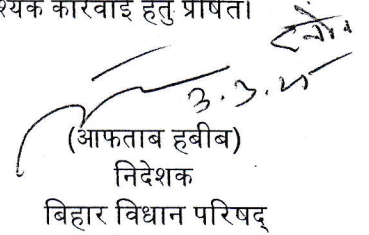 श्यक कारवाई हेतु प्रेषित।
3.3.25
(आफताब हबीब)
निदेशक
बिहार विधान परिषद्